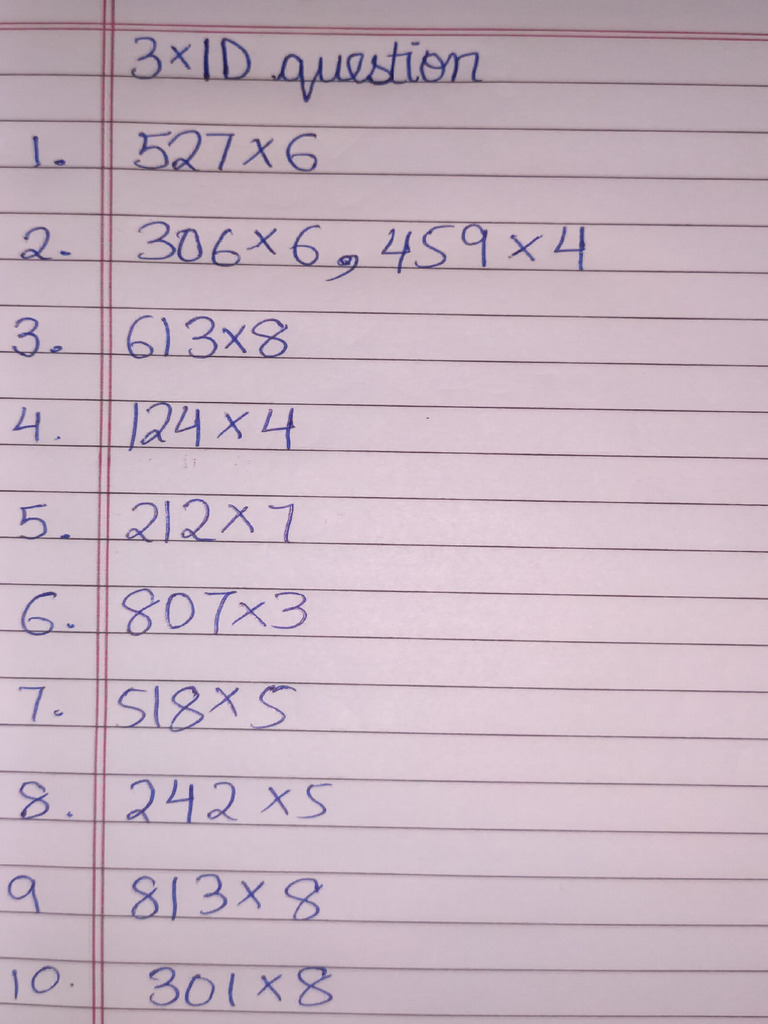 3×1D question
1. 527×6
2. 306×6, 459×4
3. 613×8
4. 124×4
5. 212×7
6. 807×3
7. 518×5
8. 242×5
9 813×8
10. 301×8